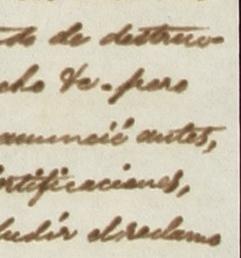 do de destruc-
cho &c. pero
anuncié antes,
ortificaciones,
ludir el reclamo